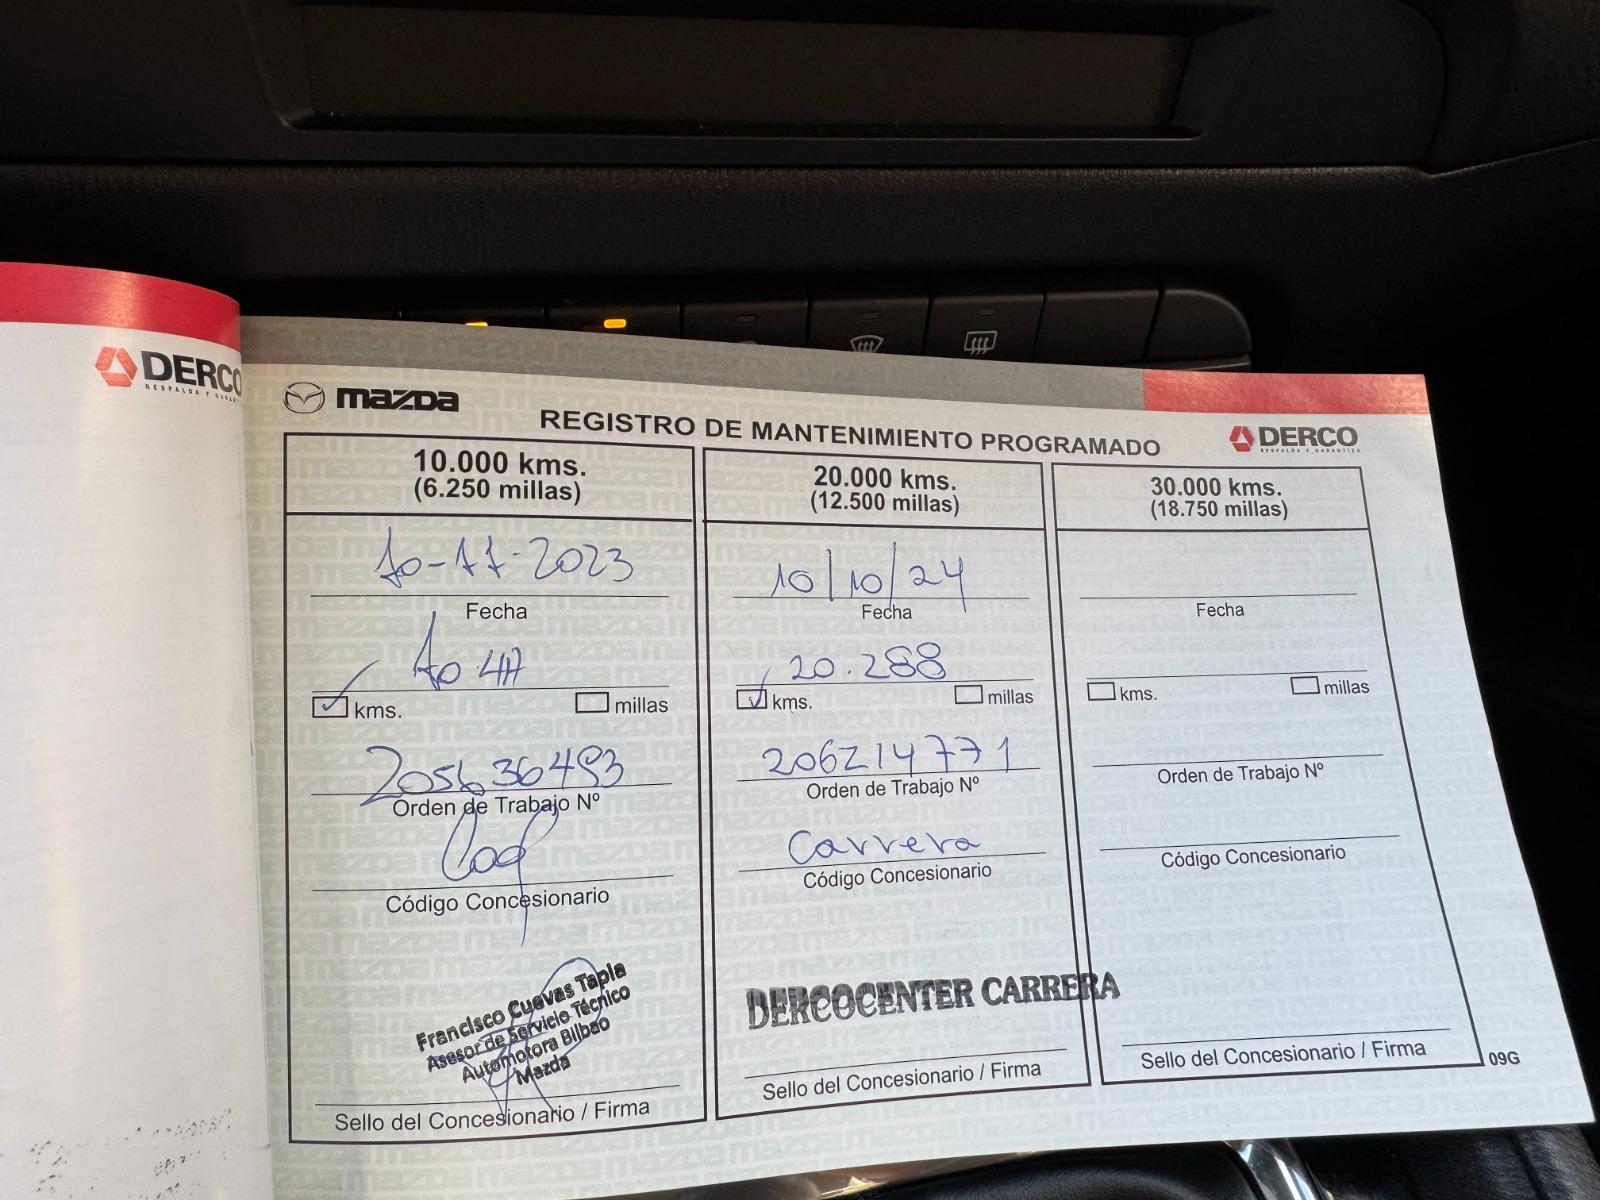 DERCO
RESPALDA Y GARANTIZA
mazda
REGISTRO DE MANTENIMIENTO PROGRAMADO
DERCO
RESPALDA Y GARANTIZA
10.000 kms.
(6.250 millas)
10-11-2023
Fecha
kms.
millas
205636493
Orden de Trabajo Nº
Código Concesionario
Francisco Cuevas Tapia
Asesor de Servicio Técnico
Automotora Bilbao
Mazda
Sello del Concesionario / Firma
20.000 kms.
(12.500 millas)
10/10/24
Fecha
20.288
kms.
millas
206214771
Orden de Trabajo Nº
Carrera
Código Concesionario
DERCOCENTER CARRERA
Sello del Concesionario / Firma
30.000 kms.
(18.750 millas)
Fecha
kms.
millas
Orden de Trabajo Nº
Código Concesionario
Sello del Concesionario / Firma
09G